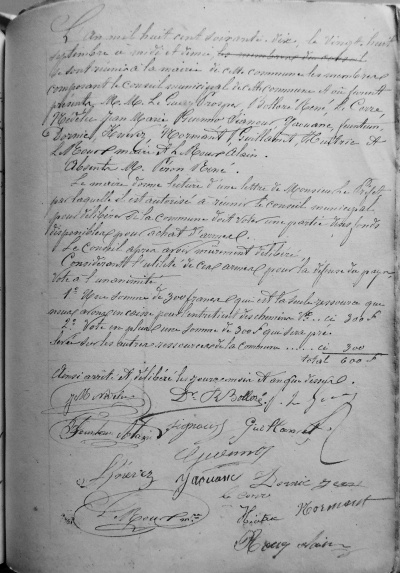 L'an mil huit cent soixante dix, le vingt huit
septembre à midi et demie, les membres du
se sont réunis à la mairie de cette commune les membres
composant le Conseil municipal de cette commune et où furent
présents, M. M. Le Prosper, Bolloré René, Le Corre,
Nédélec Jean Marie, Guenno François, Yaouanc,
Dorniel, Khervez, Normant, Guillamet, Heutrer et
Le Mour maire et Le Roux Alain.
Absents M. Péron René.
Le maire donne lecture d'une lettre de Monsieur le Préfet
par laquelle il est autorisé à réunir le conseil municipal
pour délibérer si la commune doit voter une partie des fonds
disponibles pour achat d'armes.
Le Conseil après avoir murement délibéré,
Considérant l'utilité de ces armes pour la défense du pays
vote à l'unanimité
1° Une somme de 300 francs qui est la seule ressource que
nous avons en caisse pour l'entretien des chemins V.. ci 300 F
2° Vote en plus une somme de 300 F qui sera pré
levée sur les autres ressources de la commune ..... ci 300
total 600 F
Ainsi arrêté et délibéré les jour mois et an que dessus.
Dr R Bolloré
Guillamet
Guenno
Yaouanc
Le Corre
Normant